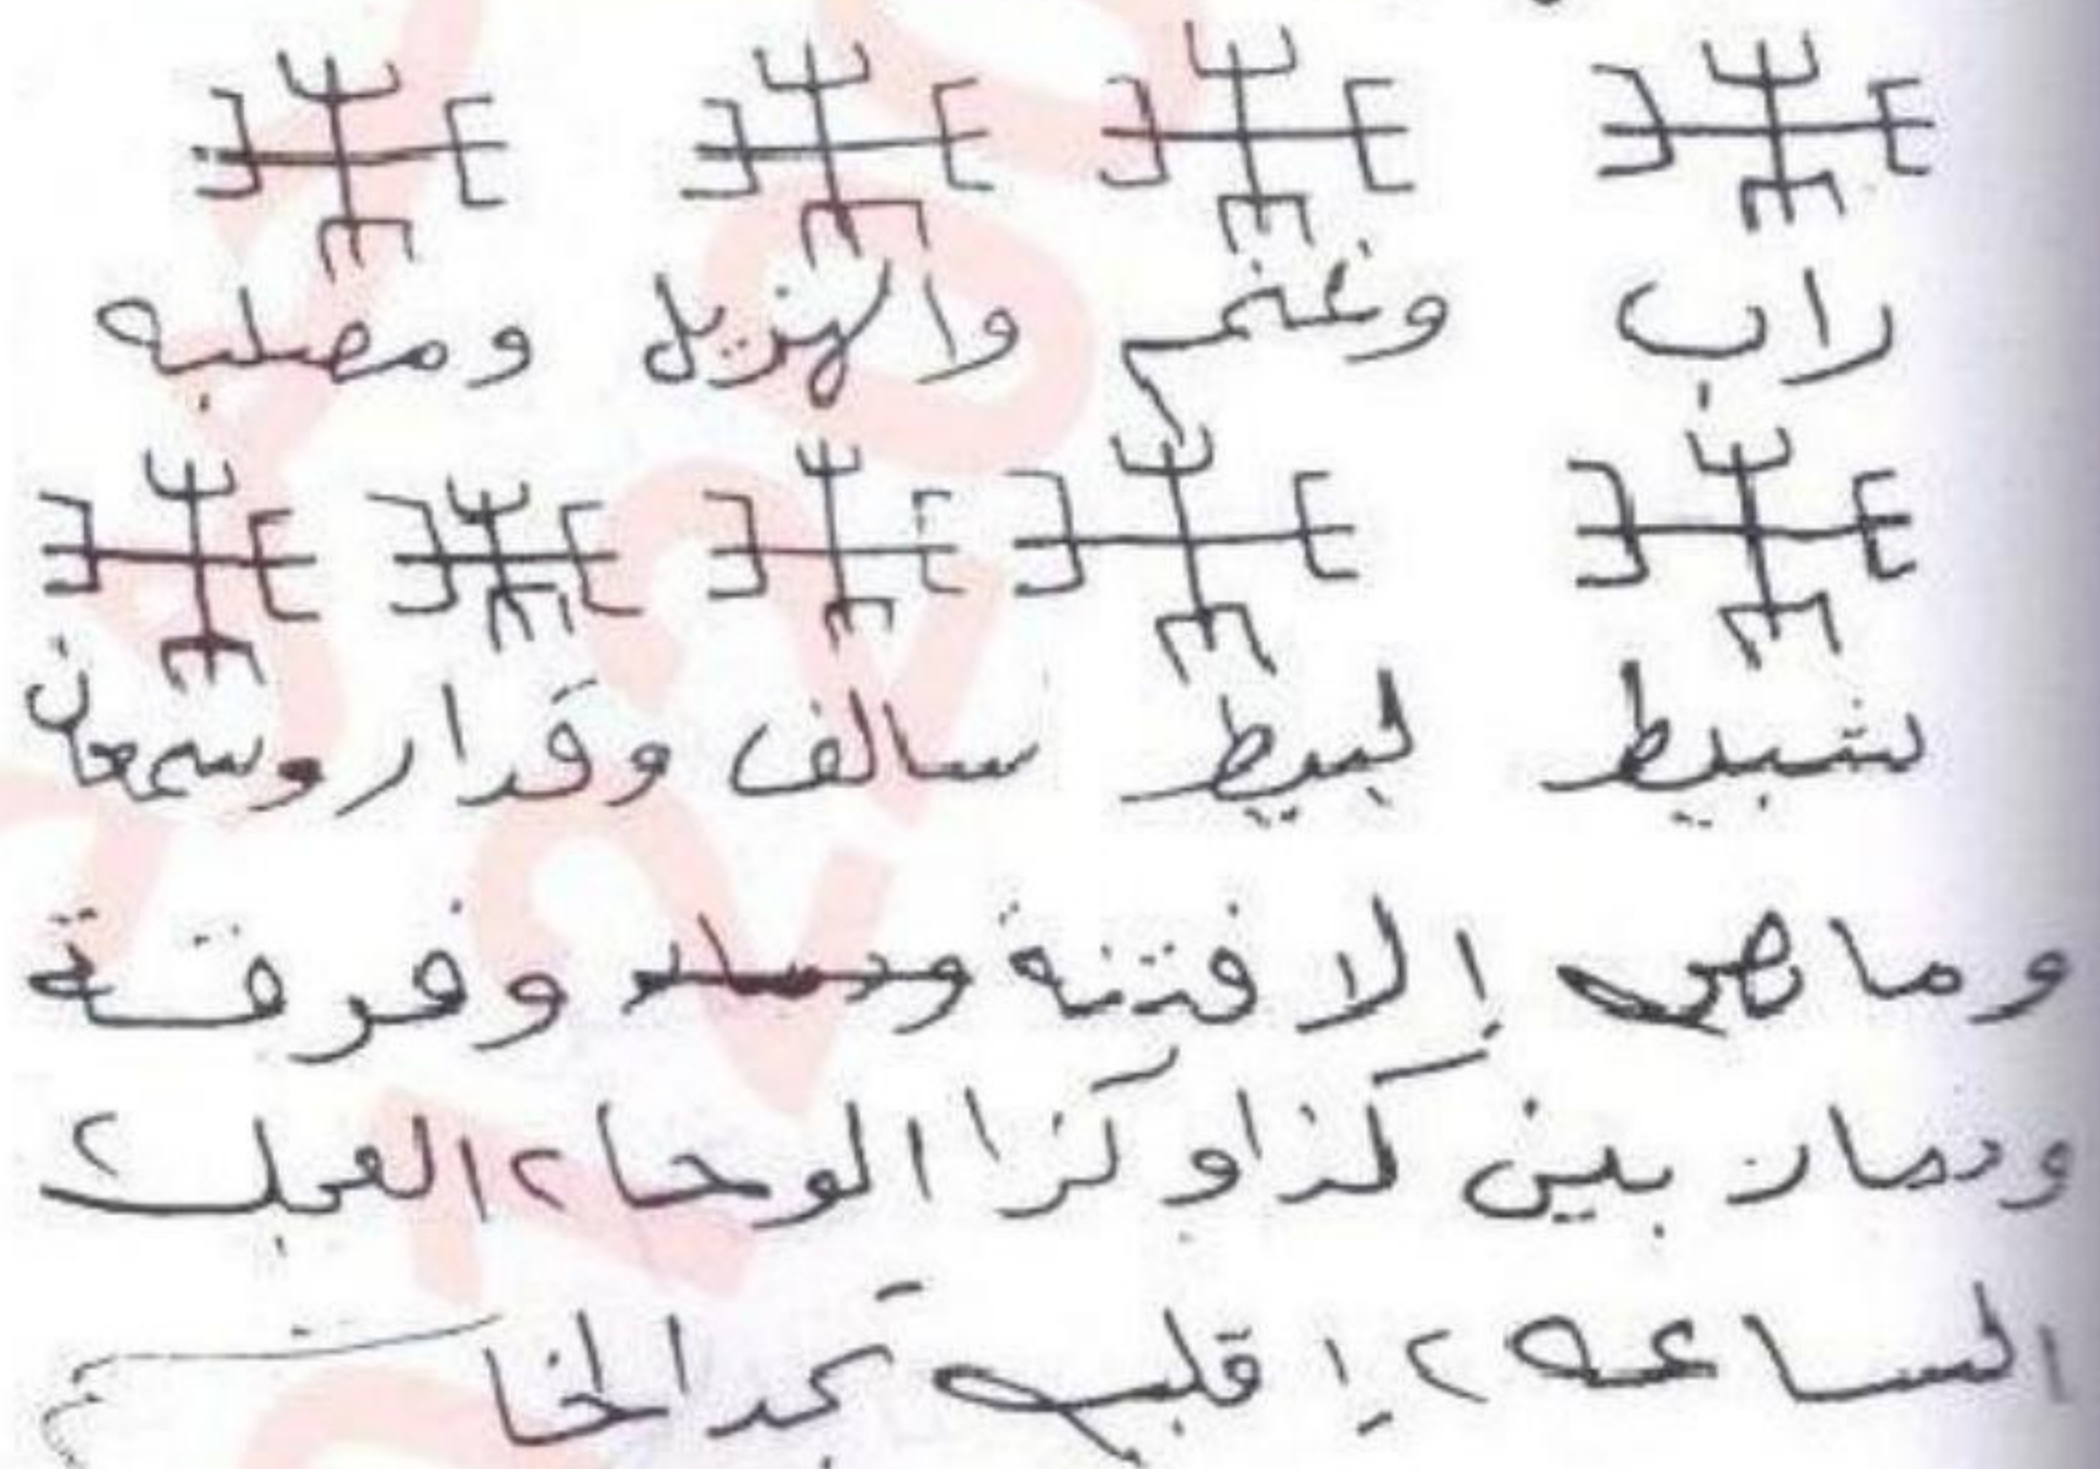 راب وغنم والهزيل ومصلبه
شبيط لبيط سالف وقدار وسمعان
وما هي إلا فتنة وفرقة
ودمار بين كذا وكذا الوحا ٢ العجل ٢
الساعه ٢ إقلب تجد